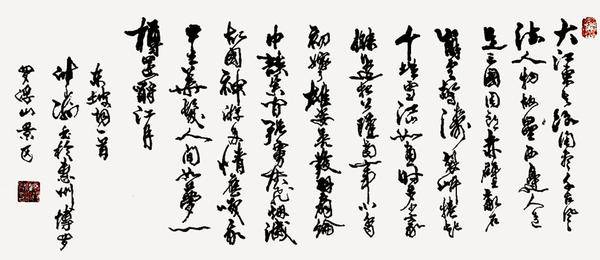 大江東去浪淘盡千古風
流人物故壘西邊人道
是三國周郎赤壁亂石
崩雲驚濤裂岸捲起
千堆雪江山如畫一時多少豪
傑遙想公瑾當年小喬
初嫁了雄姿英發羽扇綸
巾談笑間強虜灰飛煙滅
故國神游多情應笑我
早生華髮人間如夢一
樽還酹江月
東坡詞一首
書於惠州博羅
羅浮山